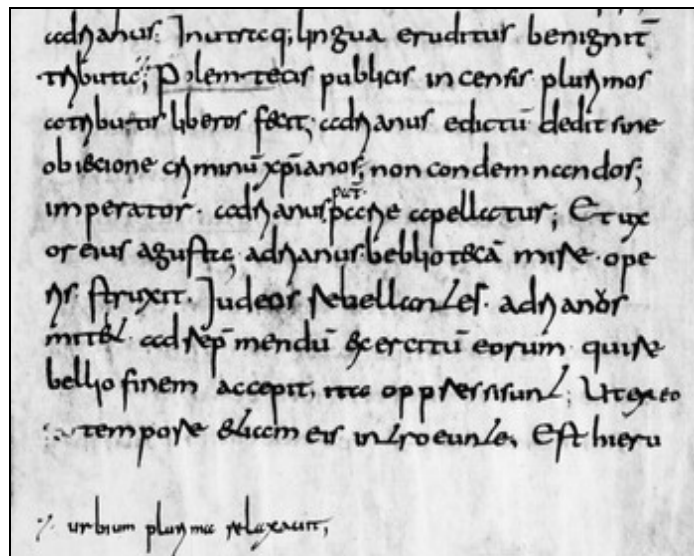 adrianus; Inutraq; lingua eruditus benignit̄
tributa; Polem tecis publicis incensis plurimos
atributis liberos fecit; adrianus edictū dedit sine
obiecione criminū xp̄ianos; non condemnandos;
imperator. adrianus pat̄ patrie apellatur; Et ux
or eius agusta; adrianus bebliotecā mire ope
ris. struxit. Iudeos rebellantes. adrianus
mittet adrep̄mendū exercitū eorum quire
bellio finem accepit, ita oppressi sunt; Ut ex eo
tempore etiam eis introeunte. Est hieru
urbium plurima relaxauit;